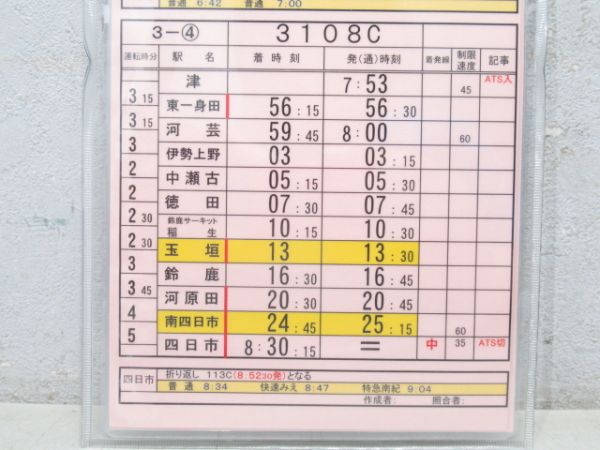 普通 6:42 普通 7:00
3-④ 3108C
運転時分 駅名 着時刻 発(通)時刻 着発線 制限速度 記事
津 7:53 45 ATS入
3 15
東一身田 56:15 56:30
3 15
河芸 59:45 8:00 60
3
伊勢上野 03 03:15
2
中瀬古 05:15 05:30
2
徳田 07:30 07:45
2 30
鈴鹿サーキット稲生 10:15 10:30
2 30
玉垣 13 13:30
3
鈴鹿 16:30 16:45
3 45
河原田 20:30 20:45
4
南四日市 24:45 25:15 60
5
四日市 8:30:15 = 中 35 ATS切
四日市 折り返し 113C(8:5230発)となる
普通 8:34 快速みえ 8:47 特急南紀 9:04
作成者: 照合者: